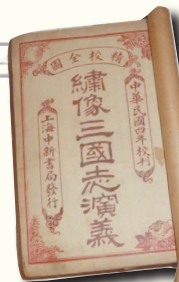 精校全圖
中華民國四年校刊
繡像三國志演義
上海中新書局發行